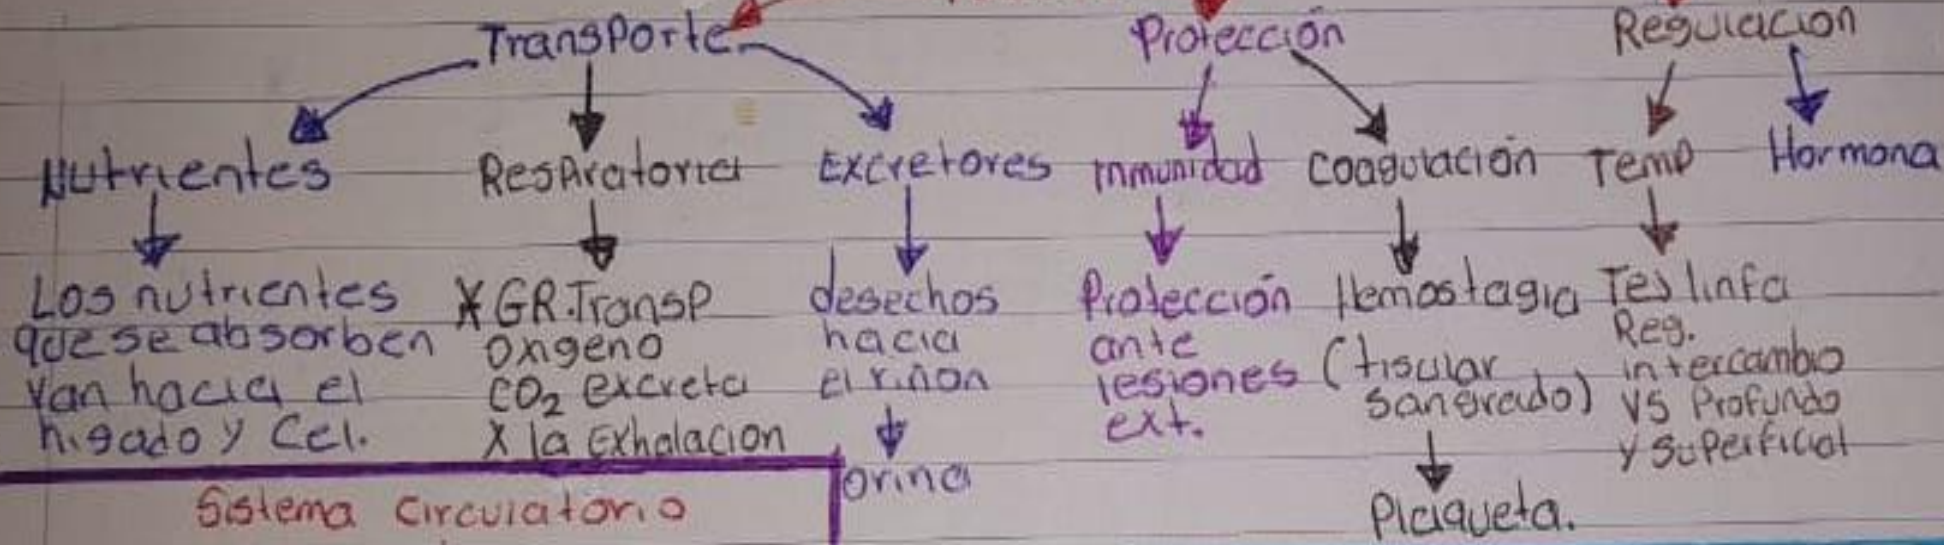 Transporte
Protección
Regulacion
Nutrientes
Respiratoria
Excretores
Inmunidad
Coagulación
Temp
Hormona
Los nutrientes
que se absorben
van hacia el
higado y Cel.
* GR. Transp
oxigeno
CO₂ excreta
X la Exhalacion
desechos
hacia
el riñon
orina
Protección
ante
lesiones
ext.
Hemostagia
(tisular
sangrado)
Plaqueta.
Tej linfa
Reg.
intercambio
VS Profundo
y superficial
Sistema Circulatorio